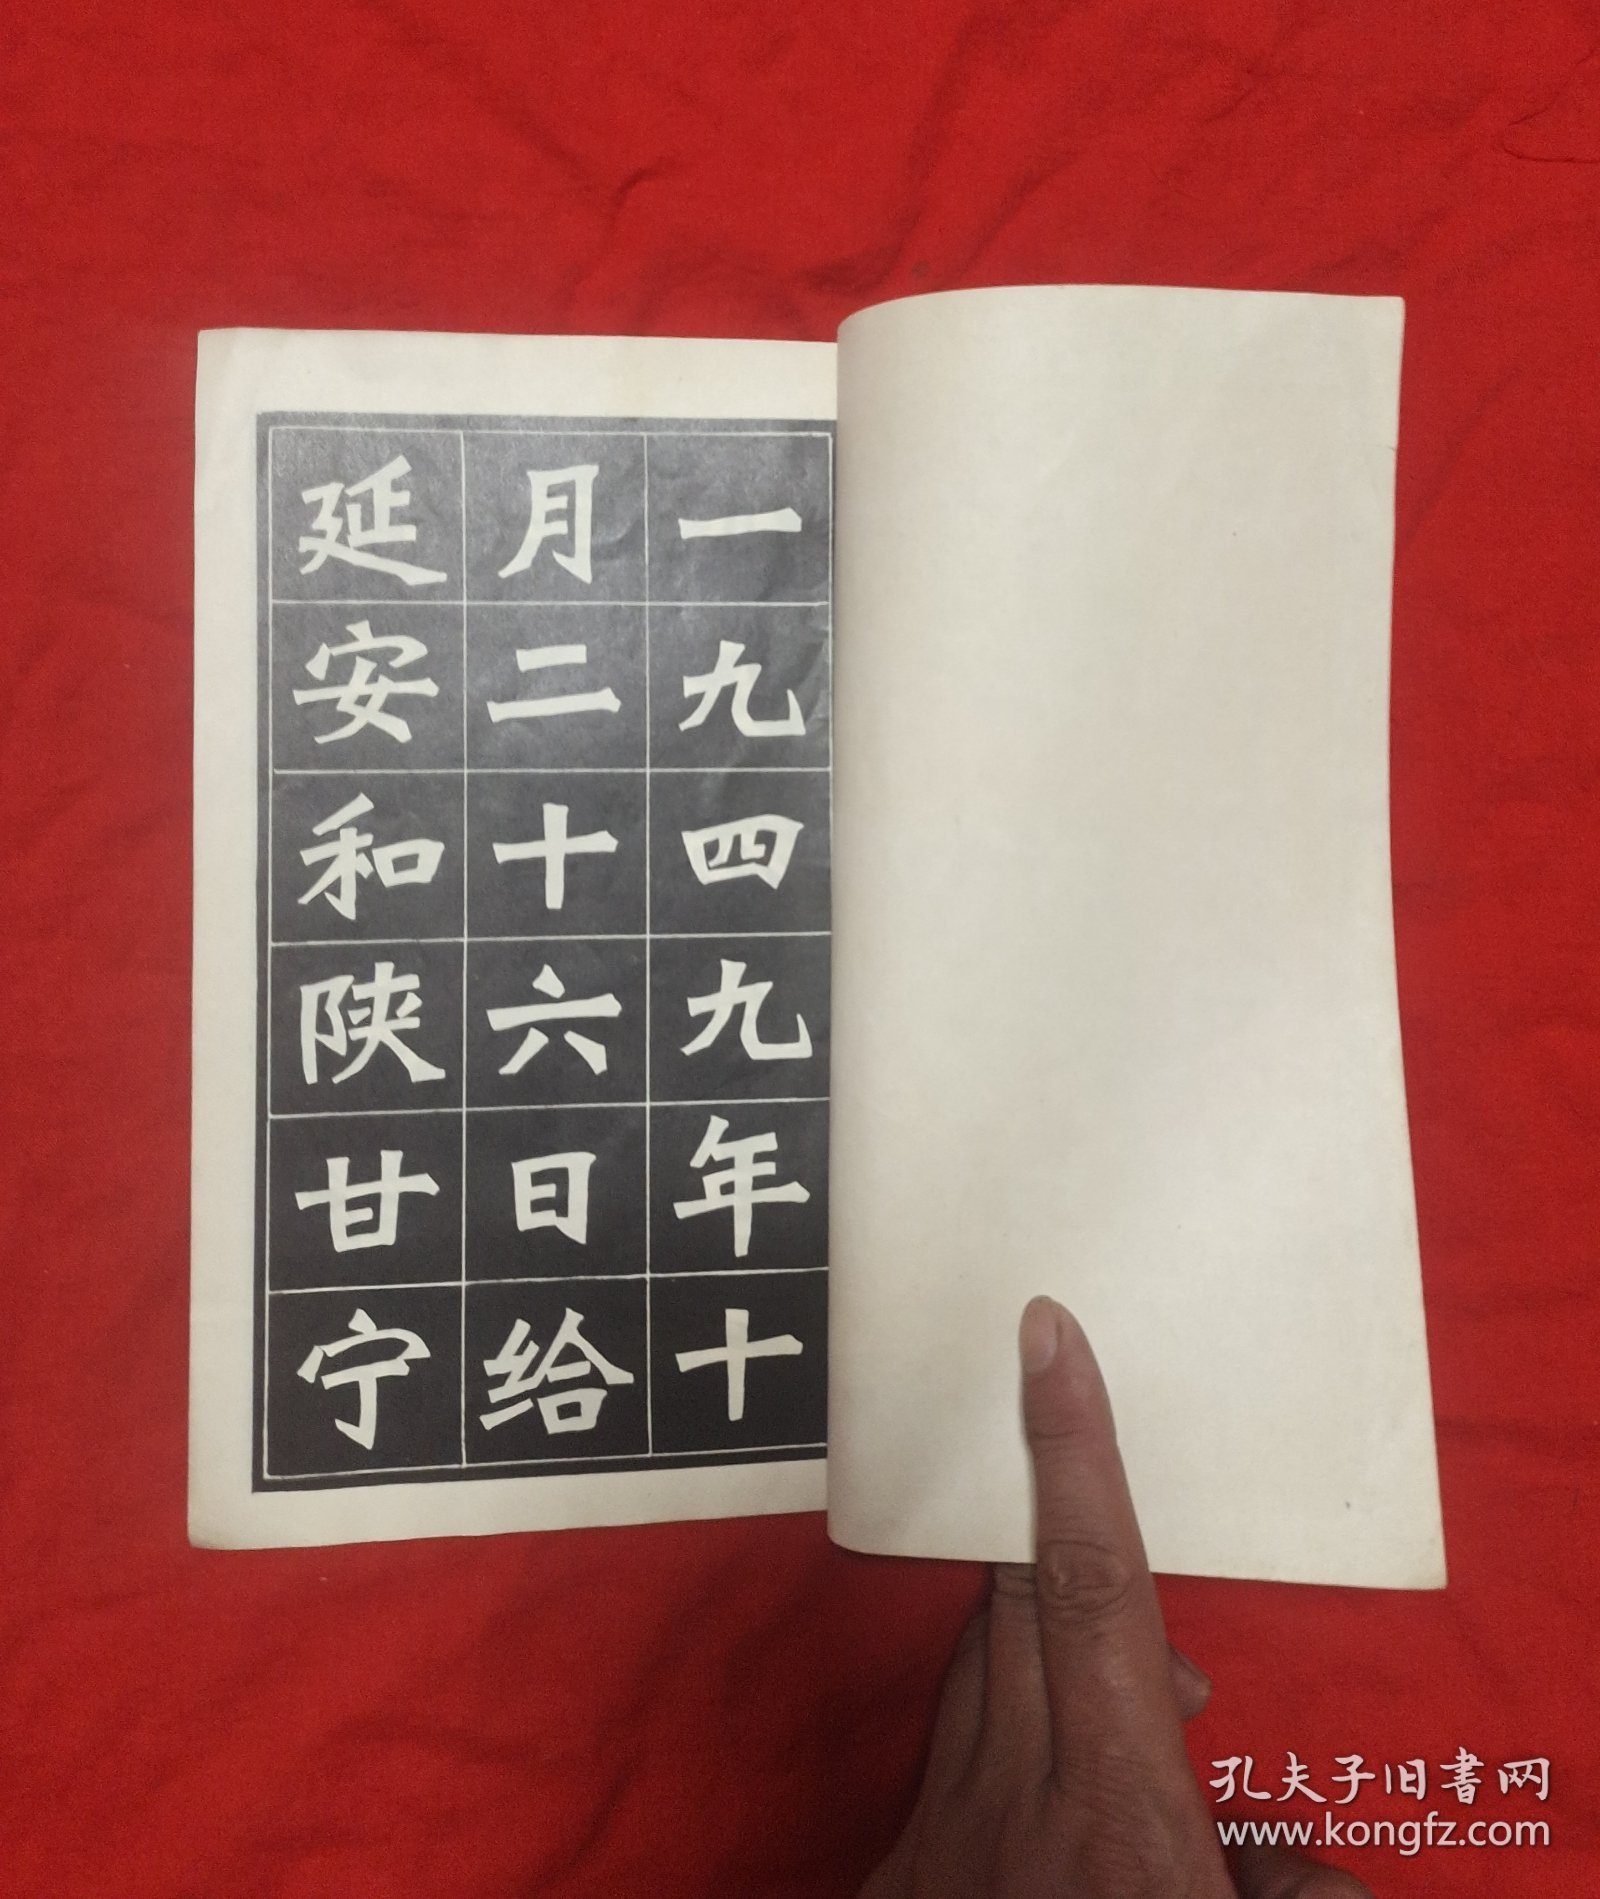 一九四九年十
月二十六日给
延安和陕甘宁
孔夫子旧书网
www.kongfz.com